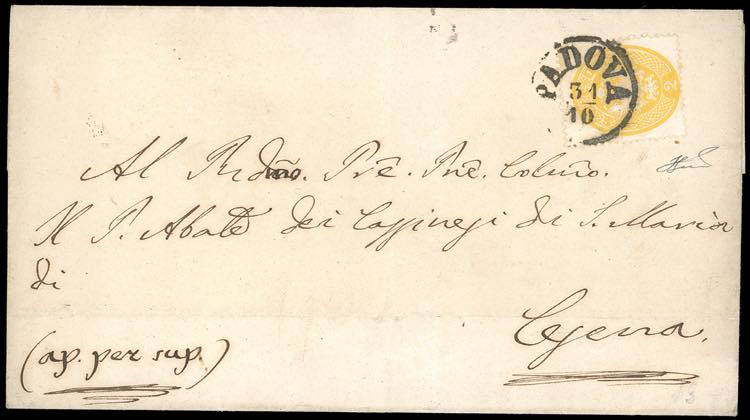 PADOVA
31
10
2
Al Rdmo. Prê. Pnê. Colmo.
Il P. Abate dei Cassinesi di S. Maria
di
Cesena.
(ap. per sup.)